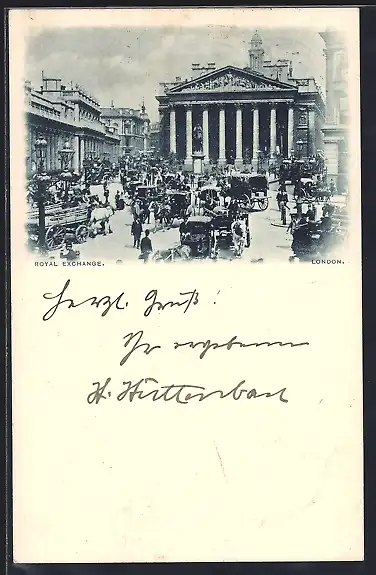 ROYAL EXCHANGE. LONDON.
Herzl. Gruß!
Ihr ergebener
H. Hüttenbach